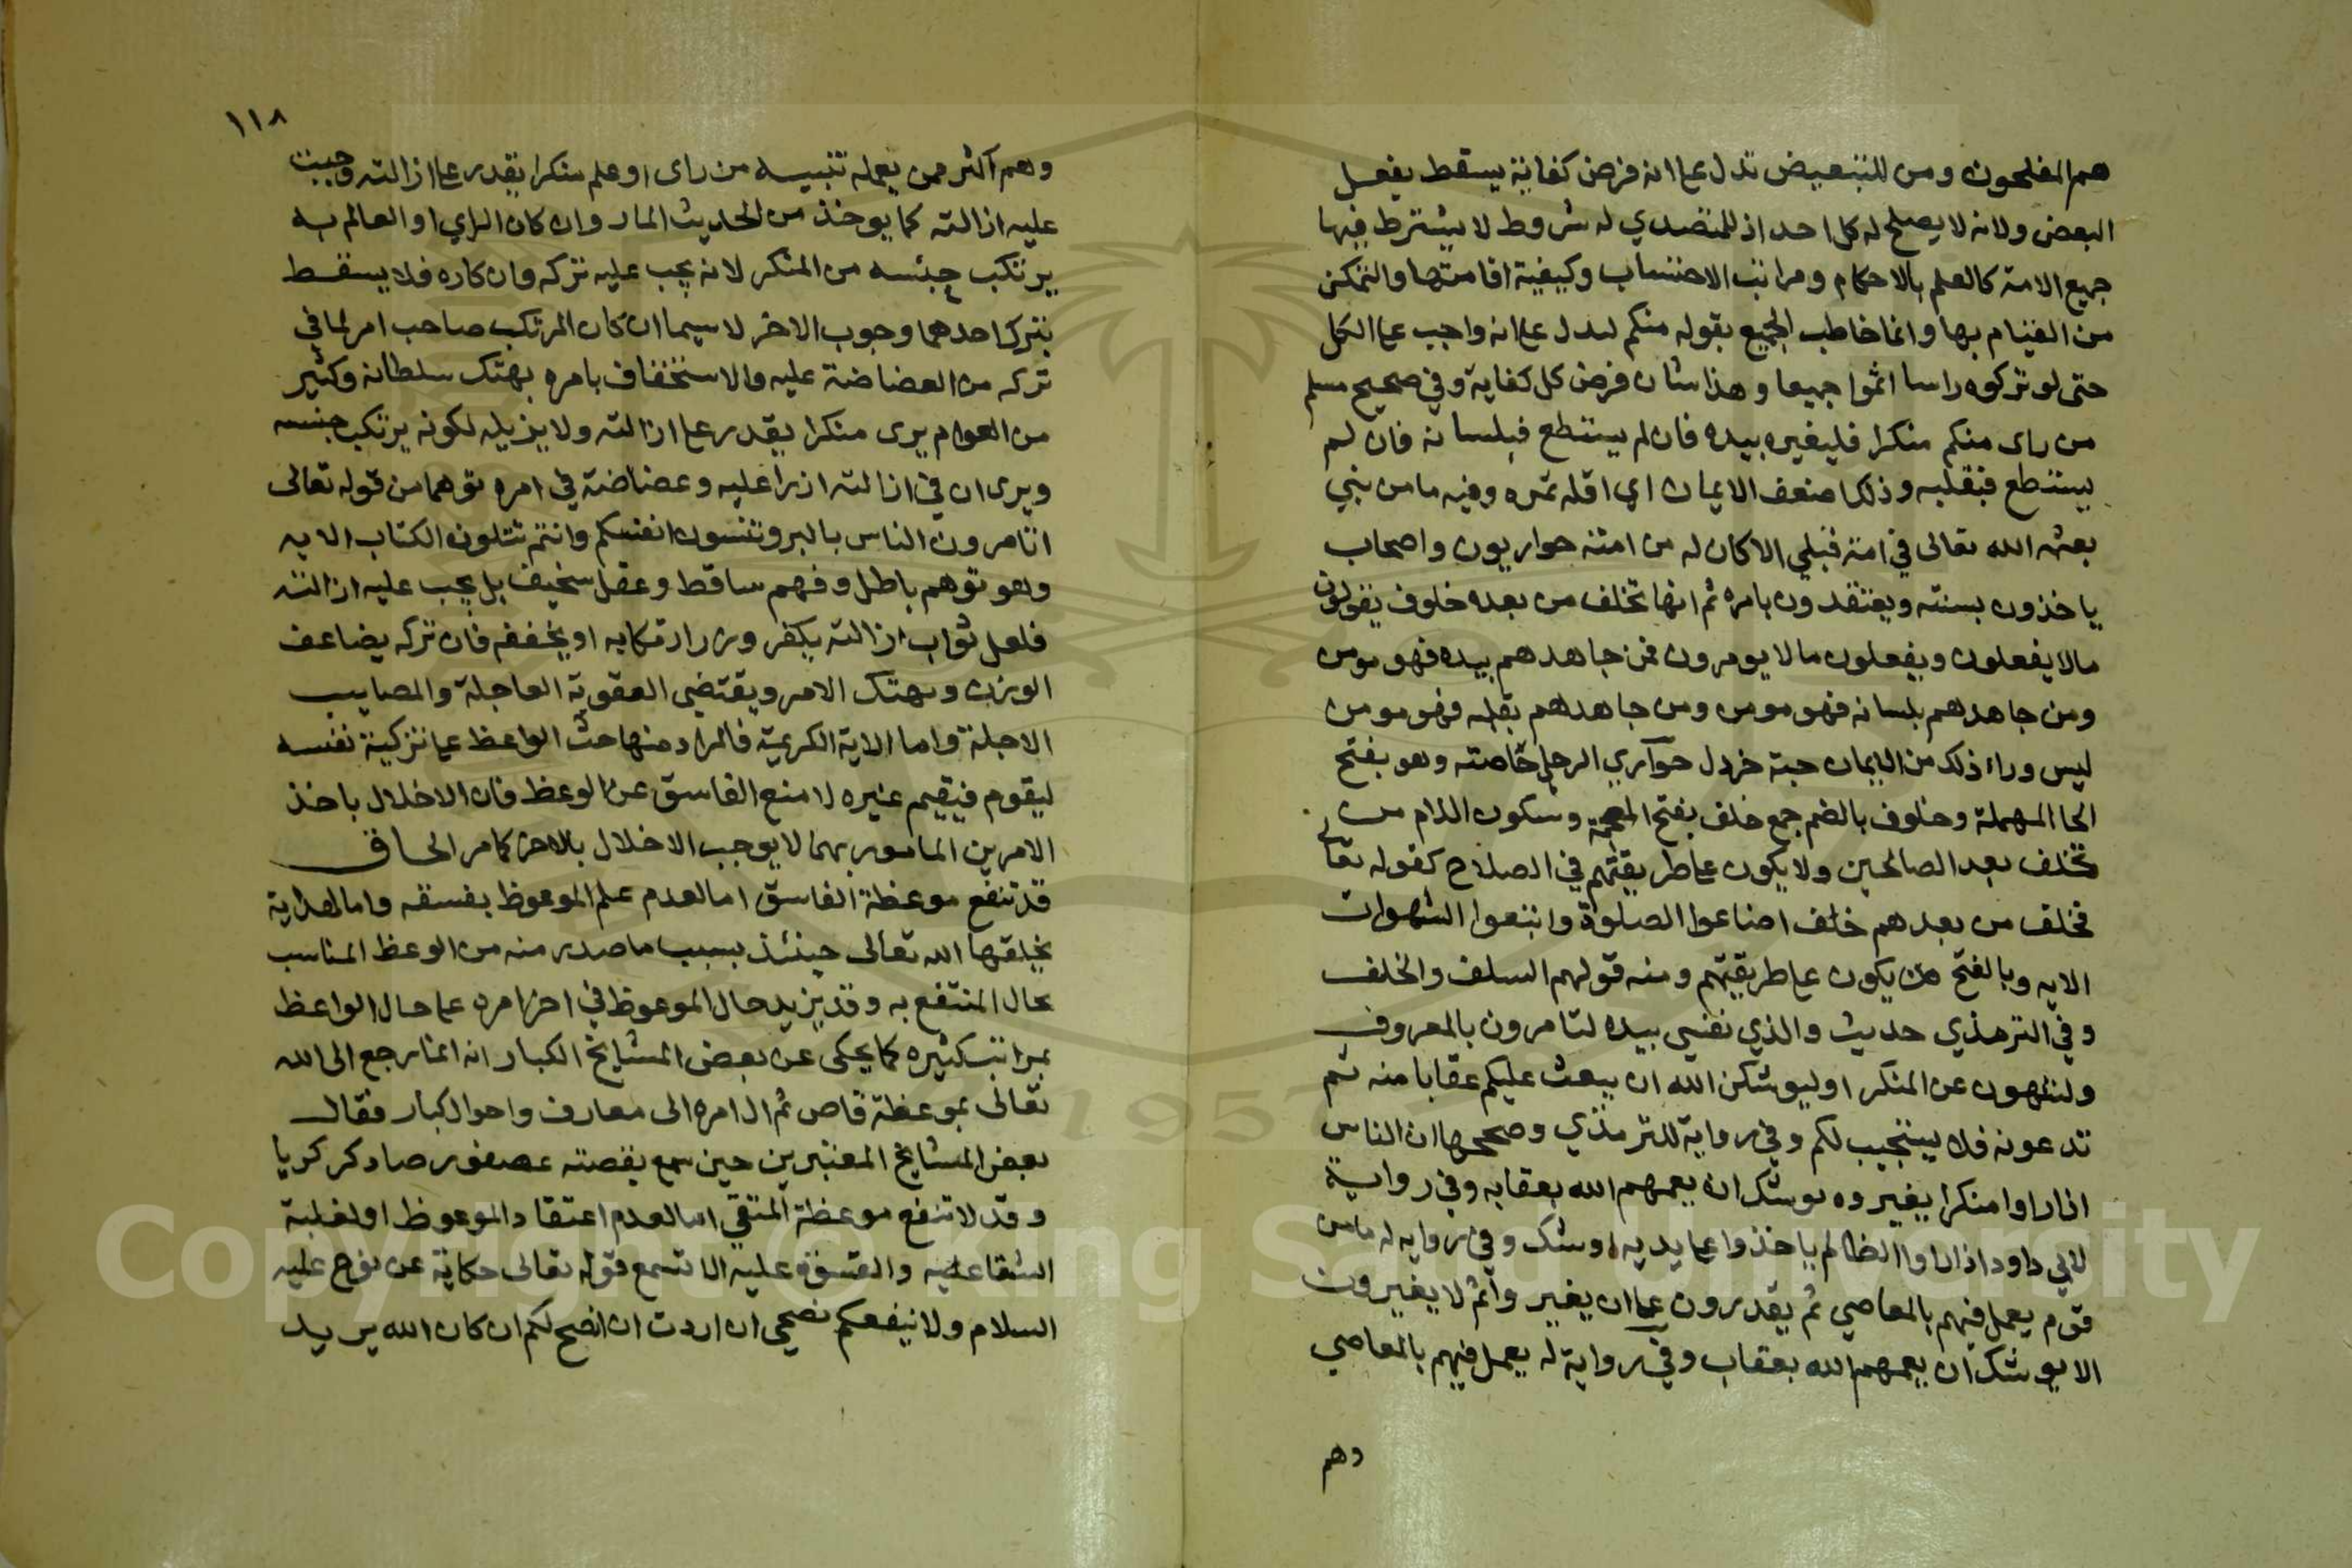 هم المفلحون ومن للتبعيض تدل على انه فرض كفاية يسقط بفعل
البعض ولانه لا يصلح له كل احد اذ للمتصدي له شروط لا يشترط فيها
جميع الامة كالعلم بالاحكام ومراتب الاحتساب وكيفية اقامتها والتمكن
من القيام بها وانما خاطب الجميع بقوله منكم ليدل على انه واجب على الكل
حتى لو تركوه راسا اثموا جميعا وهذا شان فرض كل كفاية وفي صحيح مسلم
من راى منكم منكرا فليغيره بيده فان لم يستطع فبلسانه فان لم
يستطع فبقلبه وذلك اضعف الايمان اي اقله ثمره وفيه ما من نبي
بعثه الله تعالى في امة قبلي الا كان له من امته حواريون واصحاب
ياخذون بسنته ويعتقدون بامره ثم انها تخلف من بعده خلوف يقولون
مالا يفعلون ويفعلون مالا يومرون فمن جاهدهم بيده فهو مومن
ومن جاهدهم بلسانه فهو مومن ومن جاهدهم بقلبه فهو مومن
ليس وراء ذلك من الايمان حبة خردل حواري الرجل خاصته وهو بفتح
الحا المهملة وخلوف بالضم جمع خلف بفتح المعجمة وسكون اللام من
تخلف بعد الصالحين ولا يكون على طريقتهم في الصلاح كقوله تعالى
فخلف من بعدهم خلف اضاعوا الصلوة واتبعوا الشهوات
الايه وبالفتح من يكون على طريقتهم ومنه قولهم السلف والخلف
وفي الترمذي حديث والذي نفسي بيده لتامرون بالمعروف
ولتنهون عن المنكر او ليوشكن الله ان يبعث عليكم عقابا منه ثم
تدعونه فلا يستجيب لكم وفي رواية للترمذي وصححها ان الناس
اذا راوا منكرا يغيروه يوشك ان يعمهم الله بعقابه وفي رواية
لابي داود اذا راوا الظالم ياخذوا على يديه اوشك وفي روايه له ما من
قوم يعمل فيهم بالمعاصي ثم يقدرون على ان يغير واثم لا يغيرون
الا يوشك ان يعمهم الله بعقاب وفي رواية له يعمل فيهم بالمعاصي
وهم
١١٨
وهم اكثر ممن يعمله تنبيه من راى او علم منكرا يقدر على ازالته وجبت
عليه ازالته كما يوخذ من الحديث المار وان كان الراي او العالم به
يرتكب جنسه من المنكر لانه يجب عليه تركه وانكاره فلا يسقط
بترك احدهما وجوب الاخر لا سيما ان كان المرتكب صاحب امر لما في
تركه من الغضاضة عليه والاستخفاف بامره بهتك سلطانه وكثير
من العوام يرى منكرا يقدر على ازالته ولا يزيله لكونه يرتكب جنسه
ويرى ان في ازالته ازرا عليه وغضاضة في امره توهما من قوله تعالى
اتامرون الناس بالبر وتنسون انفسكم وانتم تتلون الكتاب الايه
وهو توهم باطل وفهم ساقط وعقل سخيف بل يجب عليه ازالته
فلعل ثواب ازالته يكفر وزر ارتكابه او يخففه فان تركه يضاعف
الوزر ويهتك الامر ويقتضي العقوبة العاجلة والمصايب
الاجلة واما الاية الكريمة فالمراد منها حث الواعظ على تزكية نفسه
ليقوم فيقيم غيره لا منع الفاسق عن الوعظ فان الاخلال باحد
الامرين المامور بهما لا يوجب الاخلال بالاخر كما مر الحاق
قد تنفع موعظة الفاسق اما لعدم علم الموعوظ بفسقه واما لهداية
يخلقها الله تعالى حينئذ بسبب ما صدر منه من الوعظ المناسب
بحال المنتفع به وقد يزيد حال الموعوظ في اخر امره على حال الواعظ
بمراتب كثيره كما يحكى عن بعض المشايخ الكبار انه انما رجع الى الله
تعالى بموعظة قاص ثم ال امره الى معارف واحوال كبار فقال
بعض المشايخ المعتبرين حين سمع بقصته عصفور صاد كركيا
وقد لا تنفع موعظة المتقي اما لعدم اعتقاد الموعوظ او لغلبة
الشقا عليه والقسوة عليه الا تسمع قوله تعالى حكاية عن نوح عليه
السلام ولا ينفعكم نصحي ان اردت ان انصح لكم ان كان الله يريد
Copyright © King Saud University
1957